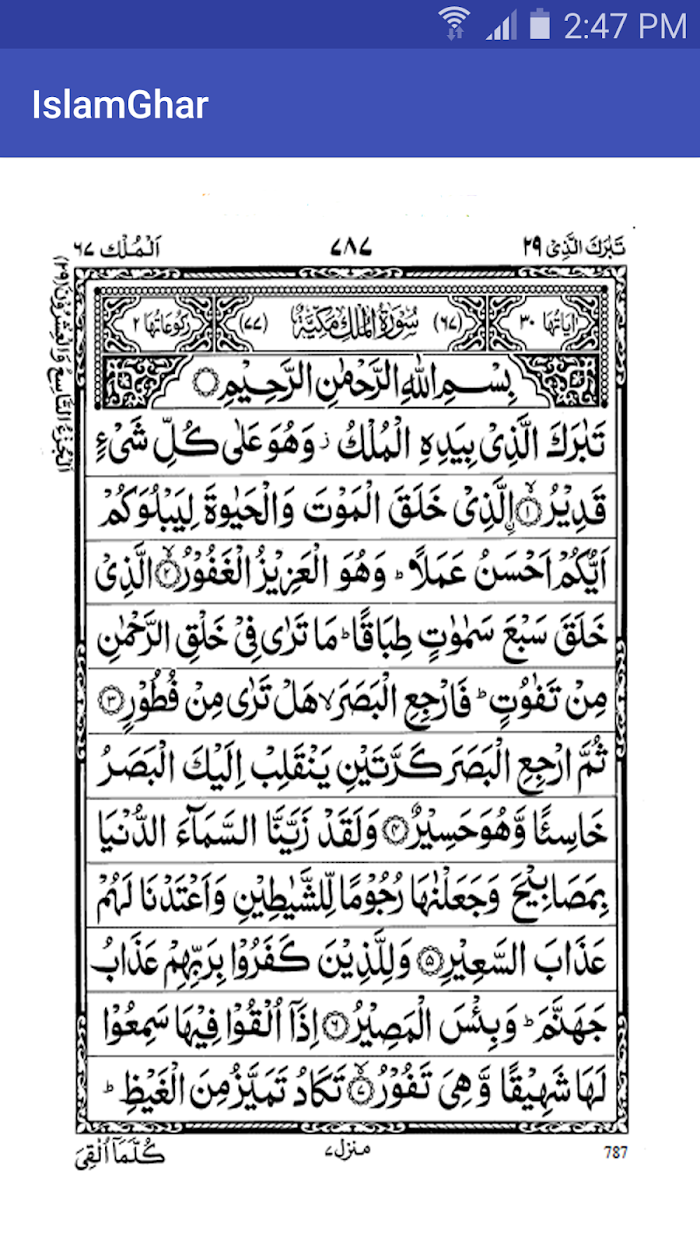 2:47 PM
IslamGhar
تَبٰرَكَ الَّذِیْ ٢٩
٧٨٧
اَلْمُلْك ٦٧
اَلْجُزْءُ التَّاسِعُ وَالْعِشْرُوْنَ (٢٩)
اٰيَاتُهَا ٣٠
(٦٧) سُوْرَةُ الْمُلْكِ مَكِّيَّةٌ (٧٧)
رُكُوْعَاتُهَا ٢
بِسْمِ اللّٰهِ الرَّحْمٰنِ الرَّحِيْمِ
تَبٰرَكَ الَّذِیْ بِيَدِهِ الْمُلْكُ ز وَهُوَ عَلٰى كُلِّ شَیْءٍ
قَدِيْرُ ۙ﴿١﴾ اِۨلَّذِیْ خَلَقَ الْمَوْتَ وَالْحَيٰوةَ لِيَبْلُوَكُمْ
اَيُّكُمْ اَحْسَنُ عَمَلًا ؕ وَهُوَ الْعَزِيْزُ الْغَفُوْرُ ۙ﴿٢﴾ الَّذِیْ
خَلَقَ سَبْعَ سَمٰوٰتٍ طِبَاقًا ؕ مَا تَرٰى فِیْ خَلْقِ الرَّحْمٰنِ
مِنْ تَفٰوُتٍ ؕ فَارْجِعِ الْبَصَرَ ۙ هَلْ تَرٰى مِنْ فُطُوْرٍ ﴿٣﴾
ثُمَّ ارْجِعِ الْبَصَرَ كَرَّتَيْنِ يَنْقَلِبْ اِلَيْكَ الْبَصَرُ
خَاسِئًا وَّهُوَ حَسِيْرٌ ﴿٤﴾ وَلَقَدْ زَيَّنَّا السَّمَآءَ الدُّنْيَا
بِمَصَابِيْحَ وَجَعَلْنٰهَا رُجُوْمًا لِّلشَّيٰطِيْنِ وَاَعْتَدْنَا لَهُمْ
عَذَابَ السَّعِيْرِ ﴿٥﴾ وَلِلَّذِيْنَ كَفَرُوْا بِرَبِّهِمْ عَذَابُ
جَهَنَّمَ ؕ وَبِئْسَ الْمَصِيْرُ ﴿٦﴾ اِذَآ اُلْقُوْا فِيْهَا سَمِعُوْا
لَهَا شَهِيْقًا وَّهِیَ تَفُوْرُ ۙ﴿٧﴾ تَكَادُ تَمَيَّزُ مِنَ الْغَيْظِ ؕ
787
منزل ٧
كُلَّمَآ اُلْقِیَ